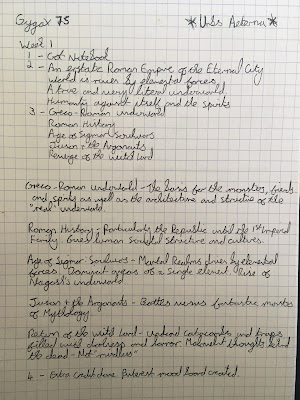 Gygax 75
*Urbs Aeterna*
Week 1
1 - Got Notebook
2 - An ecstatic Roman Empire of the Eternal City
World is riven by elemental forces
A true and very literal underworld
Humanity against itself and the spirits
3 - Greco-Roman underworld
Roman History
Age of Sigmar Soulwars
Jason & the Argonauts
Revenge of the Witch Lord
Greco-Roman underworld - The basis for the monsters, beasts
and spirits as well as the architecture and structure of the
"real" underworld.
Roman History - Particularly the Republic until the 1st Imperial
Family. Gives human societal structure and cultures.
Age of Sigmar Soulwars - Mortal Realms driven by elemental
forces. Dominant regions of a single element. Rise of
Nagash's underworld.
Jason & the Argonauts - Battles versus fantastic monsters
of Mythology.
Return of the Witch Lord - Undead catacombs and tombs
filled with darkness and horror. Malevolent thoughts behind
the dead - Not "mindless"
4 - Extra credit done. Pinterest mood board created.